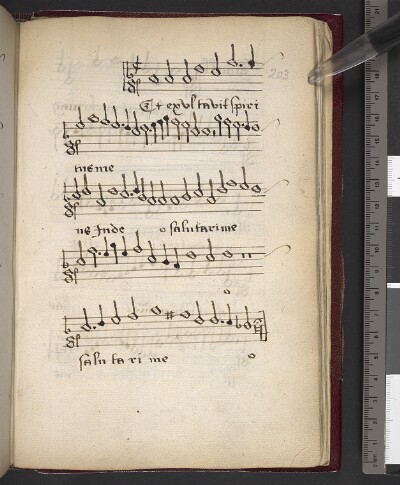 203
Et exultavit spiri
tus me
us Jnde o salutari me
salu ta ri me o